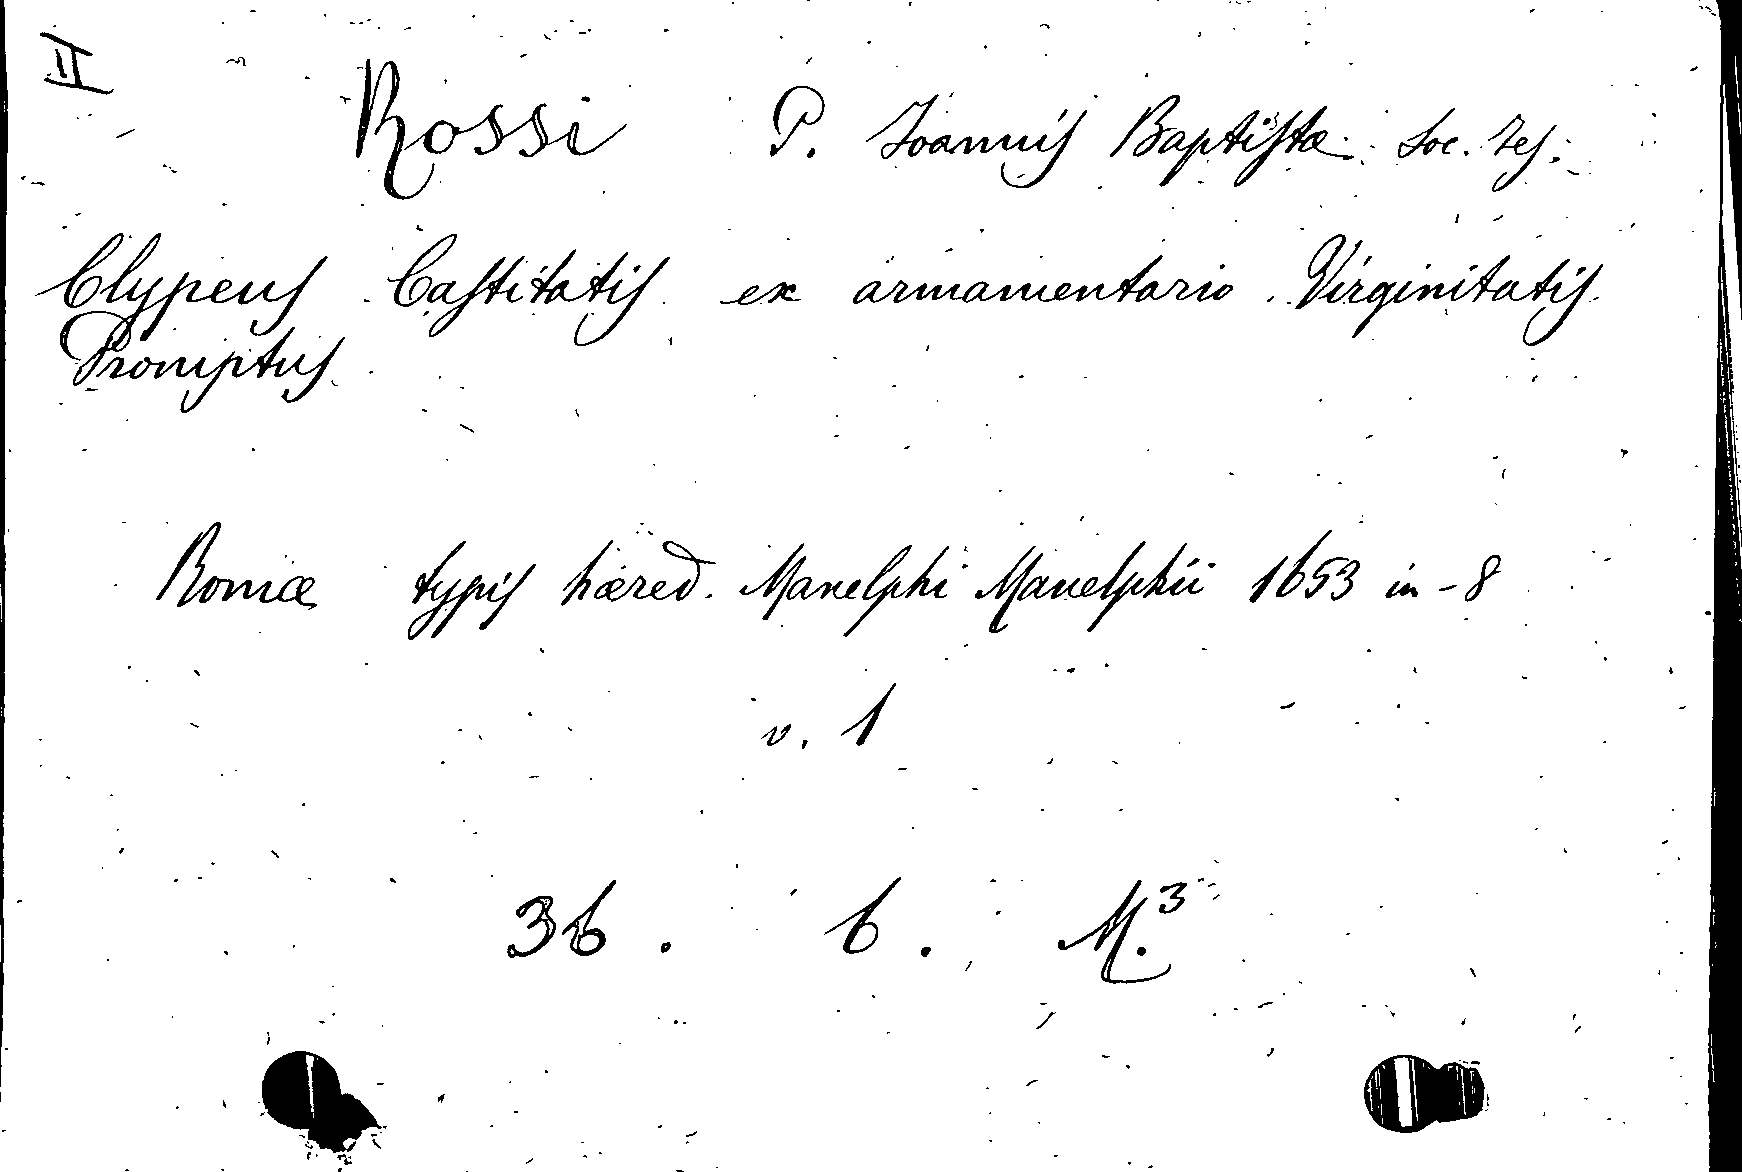 II
Rossi P. Joannis Baptistæ Soc. Jes.
Clypeus Castitatis ex armamentario Virginitatis
Promptus
Romæ typis hæred. Manelphi Manelphii 1653 in-8
v. 1
36. 6. M.3